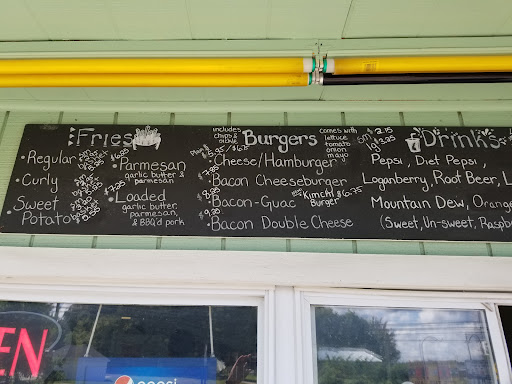 Fries
Regular
Curly
Sweet
Potato
$6.25
Parmesan
garlic butter &
parmesan
$7.25
Loaded
garlic butter,
parmesan,
& BBQ'd pork
includes
chips &
pickle
Burgers
comes with
lettuce
tomato
onion
mayo
Cheese/Hamburger
Bacon Cheeseburger
Bacon-Guac
Kimchi $6.75
Burger
$9.25
Bacon Double Cheese
Drinks
sm $2.15
lg $3.25
Pepsi, Diet Pepsi,
Loganberry, Root Beer, L
Mountain Dew, Orang
(Sweet, Un-sweet, Raspb
EN
pepsi